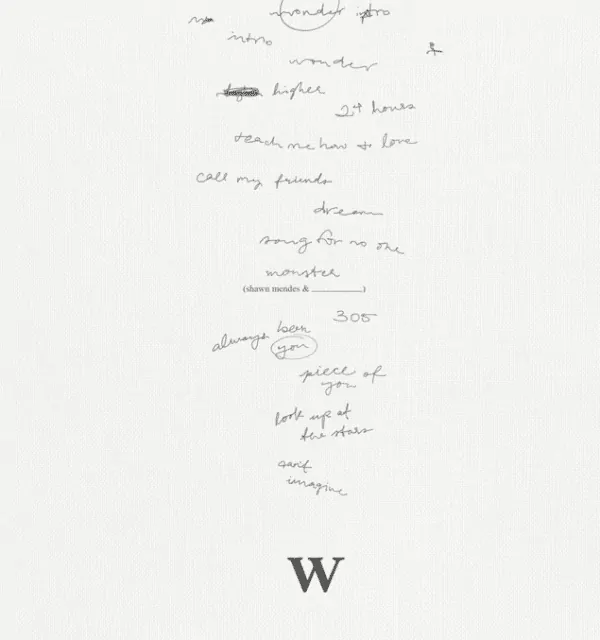 wonder intro
intro
wonder
higher
24 hours
teach me how to love
call my friends
dream
song for no one
monster
(shawn mendes & __________)
305
always been
you
piece of
you
look up at
the stars
can't
imagine
W